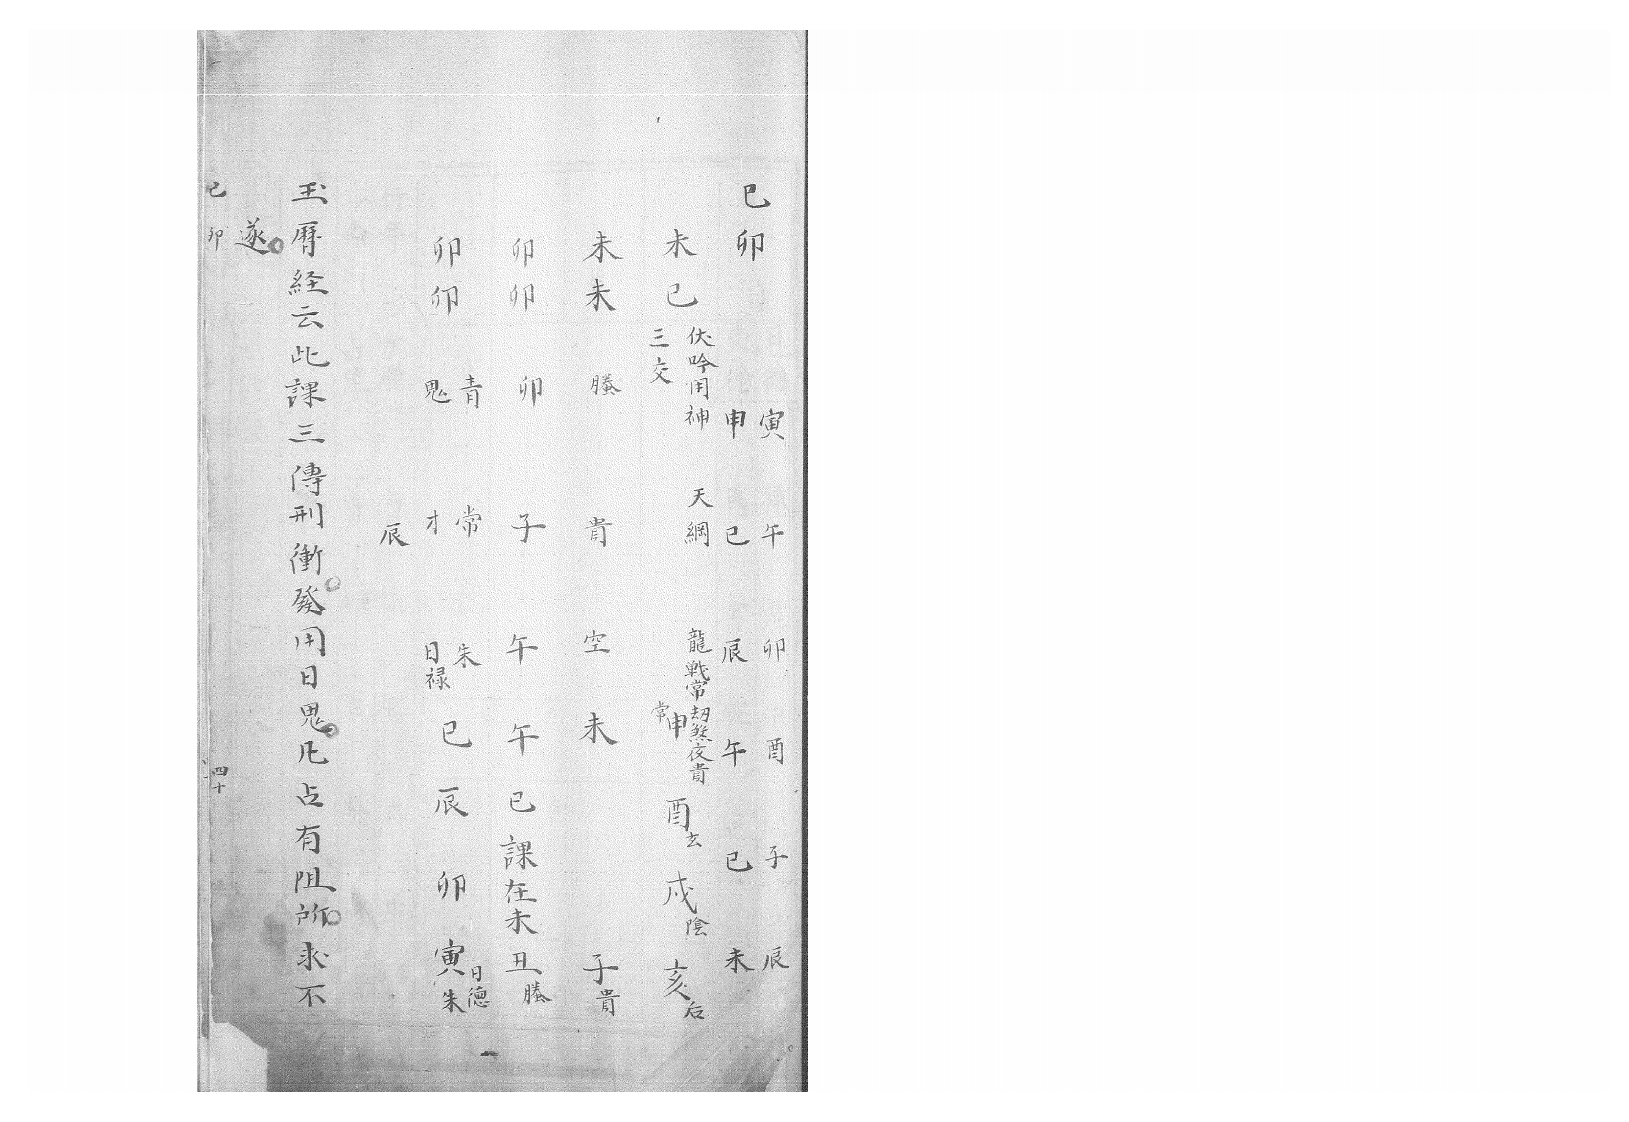 己卯
寅午卯酉子辰
申巳辰午巳未
未己
伏吟用神 天網 龍戦常 劫煞夜貴
三交
常申 酉玄 戌陰 亥后
未未 螣 貴 空 未 子貴
卯卯 卯 子 午 午 巳 課在未 丑螣
卯卯 青鬼 常才 朱日禄 巳 辰 卯 寅日徳朱
辰
玉暦経云此課三傳刑衝発用日鬼凡占有阻所求不
遂
己卯 四十